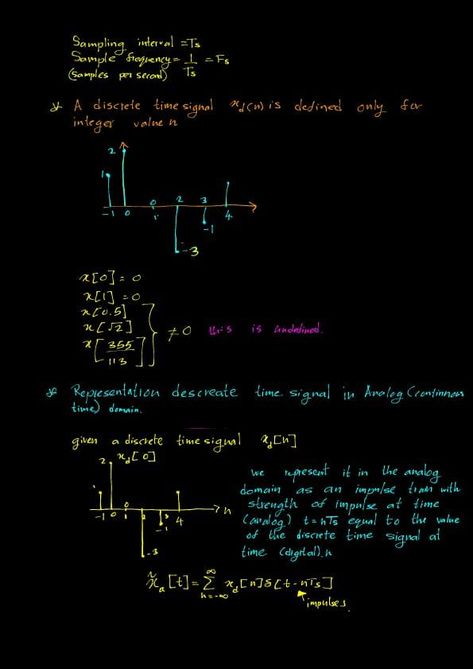 Sampling interval = Ts
Sample frequency = 1/Ts = Fs
(samples per second)
* A discrete time signal xd(n) is defined only for
integer value n
2
1
-1 0 0 1 2 3 4
-1
-3
x[0] = 0
x[1] = 0
x[0.5]
x[√2]
x[355/113]
≠0 this is undefined.
* Representation descreate time signal in Analog (continuous
time) domain.
given a discrete time signal xd[n]
2 xd[0]
-1 0 0 1 2 3 4 n
-1
-3
we represent it in the analog
domain as an impulse train with
strength of impulse at time
(analog) t = nTs equal to the value
of the discrete time signal at
time (digital) n
x̃a[t] = ∑ xd[n] δ[t-nTs]
n=-∞ ∞
impulses.